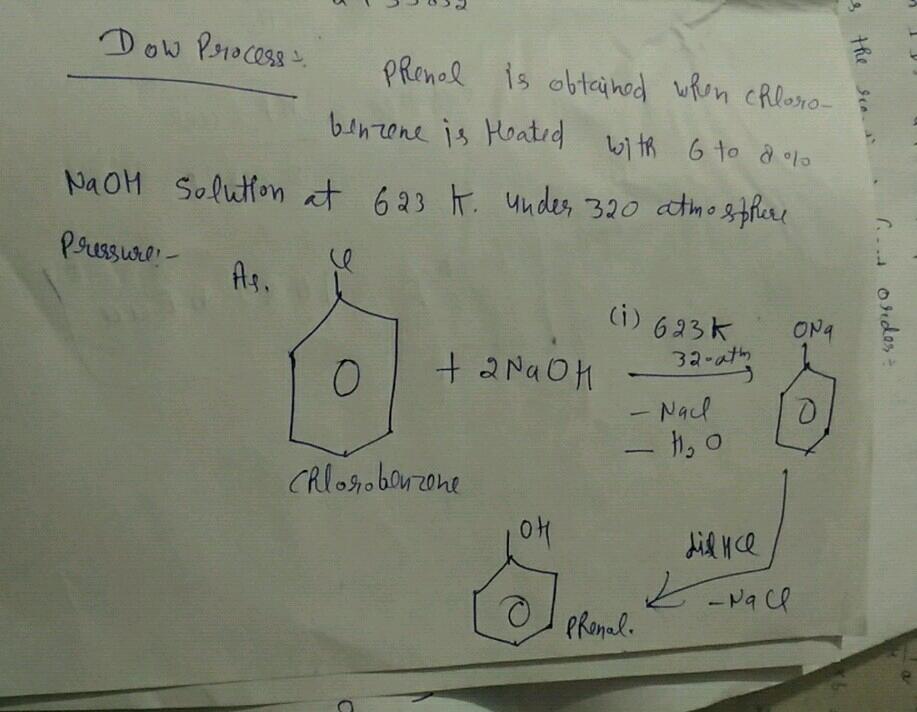 Dow Process:-
Phenol is obtained when chloro-
benzene is Heated with 6 to 8%
NaOH Solution at 623 K. under 320 atmosphere
Pressure:-
As,
Cl
+ 2NaOH
(i) 623K
320 atm
- NaCl
- H₂O
ONa
Chlorobenzene
OH
dil HCl
- NaCl
Phenol.
the
oxides: